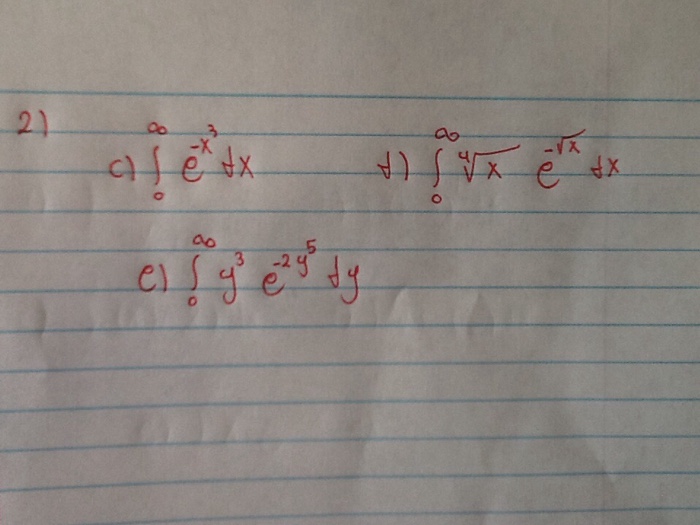 2)
c) ∫₀^∞ e^{-x³} dx d) ∫₀^∞ ⁴√x e^{-√x} dx
e) ∫₀^∞ y³ e^{-2y⁵} dy